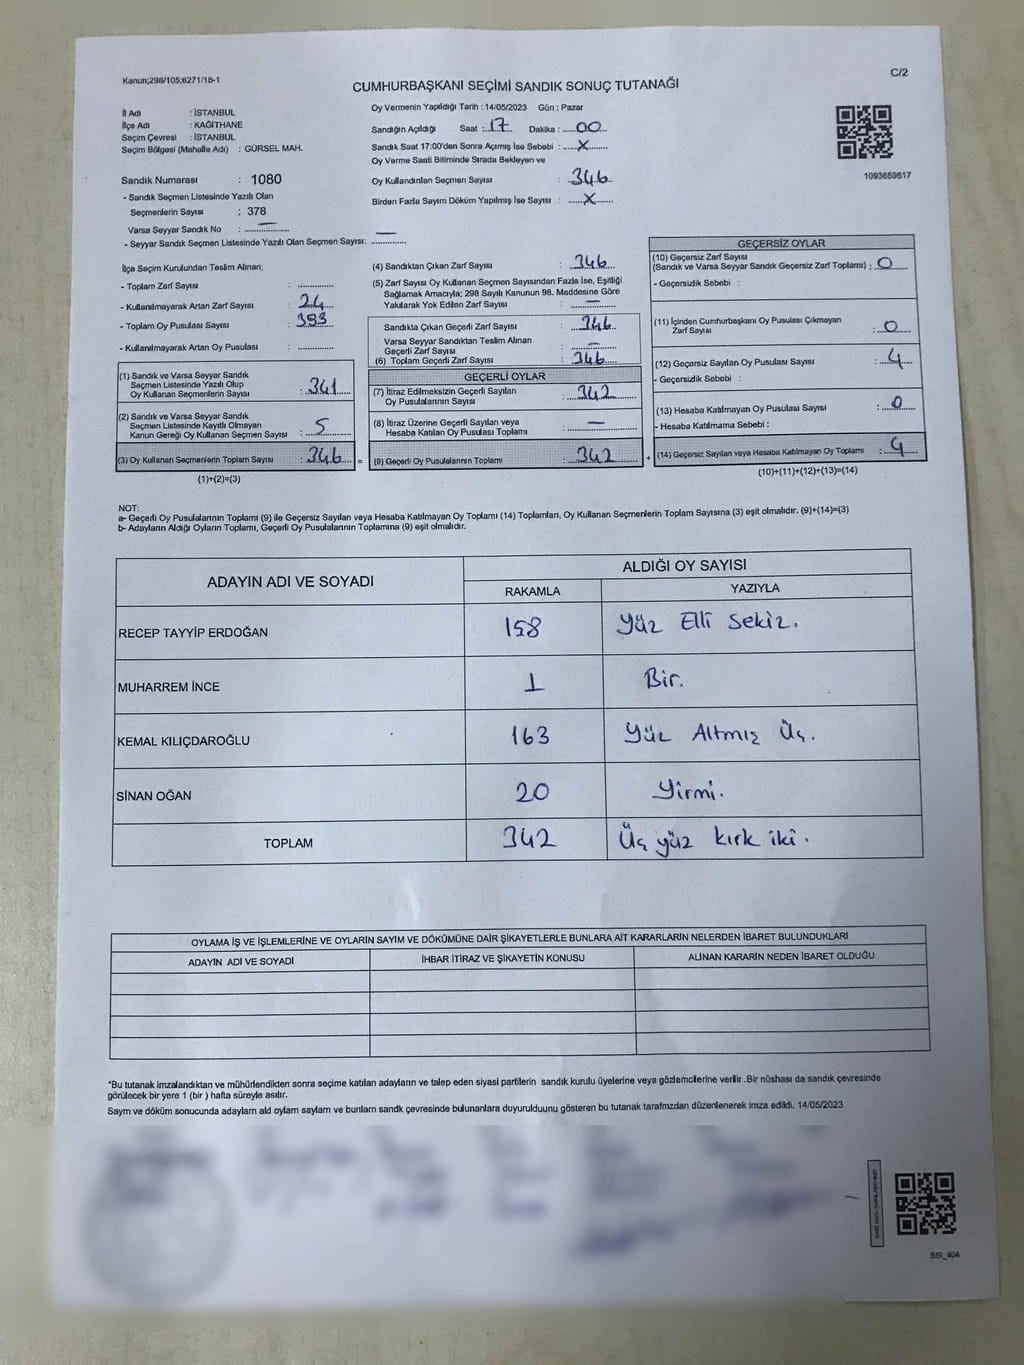 Kanun;298/105;6271/18-1
C/2
CUMHURBAŞKANI SEÇİMİ SANDIK SONUÇ TUTANAĞI
İl Adı : İSTANBUL
İlçe Adı : KAĞITHANE
Seçim Çevresi : İSTANBUL
Seçim Bölgesi (Mahalle Adı) : GÜRSEL MAH.
Oy Vermenin Yapıldığı Tarih : 14/05/2023 Gün : Pazar
Sandığın Açıldığı Saat : 17 Dakika : 00
Sandık Saat 17:00'den Sonra Açımış İse Sebebi : X
Oy Verme Saati Bitiminde Sırada Bekleyen ve
Oy Kullandırılan Seçmen Sayısı : 346
Birden Fazla Sayım Döküm Yapılmış İse Sayısı : X
1093659617
Sandık Numarası : 1080
- Sandık Seçmen Listesinde Yazılı Olan
Seçmenlerin Sayısı : 378
Varsa Seyyar Sandık No : —
- Seyyar Sandık Seçmen Listesinde Yazılı Olan Seçmen Sayısı: —
İlçe Seçim Kurulundan Teslim Alınan;
- Toplam Zarf Sayısı :
- Kullanılmayarak Artan Zarf Sayısı : 24
- Toplam Oy Pusulası Sayısı : 393
- Kullanılmayarak Artan Oy Pusulası :
(1) Sandık ve Varsa Seyyar Sandık
Seçmen Listesinde Yazılı Olup
Oy Kullanan Seçmenlerin Sayısı : 341
(2) Sandık ve Varsa Seyyar Sandık
Seçmen Listesinde Kayıtlı Olmayan
Kanun Gereği Oy Kullanan Seçmen Sayısı : 5
(3) Oy Kullanan Seçmenlerin Toplam Sayısı : 346 =
(1)+(2)=(3)
(4) Sandıktan Çıkan Zarf Sayısı : 346
(5) Zarf Sayısı Oy Kullanan Seçmen Sayısından Fazla İse, Eşitliği
Sağlamak Amacıyla; 298 Sayılı Kanunun 98. Maddesine Göre
Yakılarak Yok Edilen Zarf Sayısı : —
Sandıkta Çıkan Geçerli Zarf Sayısı : 346
Varsa Seyyar Sandıktan Teslim Alınan
Geçerli Zarf Sayısı : —
(6) Toplam Geçerli Zarf Sayısı : 346
GEÇERLİ OYLAR
(7) İtiraz Edilmeksizin Geçerli Sayılan
Oy Pusulalarının Sayısı : 342
(8) İtiraz Üzerine Geçerli Sayılan veya
Hesaba Katılan Oy Pusulası Toplamı : —
(9) Geçerli Oy Pusulalarının Toplamı : 342 +
GEÇERSİZ OYLAR
(10) Geçersiz Zarf Sayısı
(Sandık ve Varsa Seyyar Sandık Geçersiz Zarf Toplamı) : 0
- Geçersizlik Sebebi :
(11) İçinden Cumhurbaşkanı Oy Pusulası Çıkmayan
Zarf Sayısı : 0
(12) Geçersiz Sayılan Oy Pusulası Sayısı : 4
- Geçersizlik Sebebi :
(13) Hesaba Katılmayan Oy Pusulası Sayısı : 0
- Hesaba Katılmama Sebebi :
(14) Geçersiz Sayılan veya Hesaba Katılmayan Oy Toplamı : 4
(10)+(11)+(12)+(13)=(14)
NOT:
a- Geçerli Oy Pusulalarının Toplamı (9) ile Geçersiz Sayılan veya Hesaba Katılmayan Oy Toplamı (14) Toplamları, Oy Kullanan Seçmenlerin Toplam Sayısına (3) eşit olmalıdır. (9)+(14)=(3)
b- Adayların Aldığı Oyların Toplamı, Geçerli Oy Pusulalarının Toplamına (9) eşit olmalıdır.
ADAYIN ADI VE SOYADI
ALDIĞI OY SAYISI
RAKAMLA YAZIYLA
RECEP TAYYİP ERDOĞAN 158 Yüz Elli Sekiz.
MUHARREM İNCE 1 Bir.
KEMAL KILIÇDAROĞLU 163 Yüz Altmış Üç.
SİNAN OĞAN 20 Yirmi.
TOPLAM 342 Üç yüz kırk iki.
OYLAMA İŞ VE İŞLEMLERİNE VE OYLARIN SAYIM VE DÖKÜMÜNE DAİR ŞİKAYETLERLE BUNLARA AİT KARARLARIN NELERDEN İBARET BULUNDUKLARI
ADAYIN ADI VE SOYADI İHBAR İTİRAZ VE ŞİKAYETİN KONUSU ALINAN KARARIN NEDEN İBARET OLDUĞU
*Bu tutanak imzalandıktan ve mühürlendikten sonra seçime katılan adayların ve talep eden siyasi partilerin sandık kurulu üyelerine veya gözlemcilerine verilir .Bir nüshası da sandık çevresinde
görülecek bir yere 1 (bir ) hafta süreyle asılır.
Saym ve döküm sonucunda adaylarn ald oylarn saylarn ve bunlarn sandk çevresinde bulunanlara duyurulduunu gösteren bu tutanak tarafmzdan düzenlenerek imza edildi. 14/05/2023
SSI_404